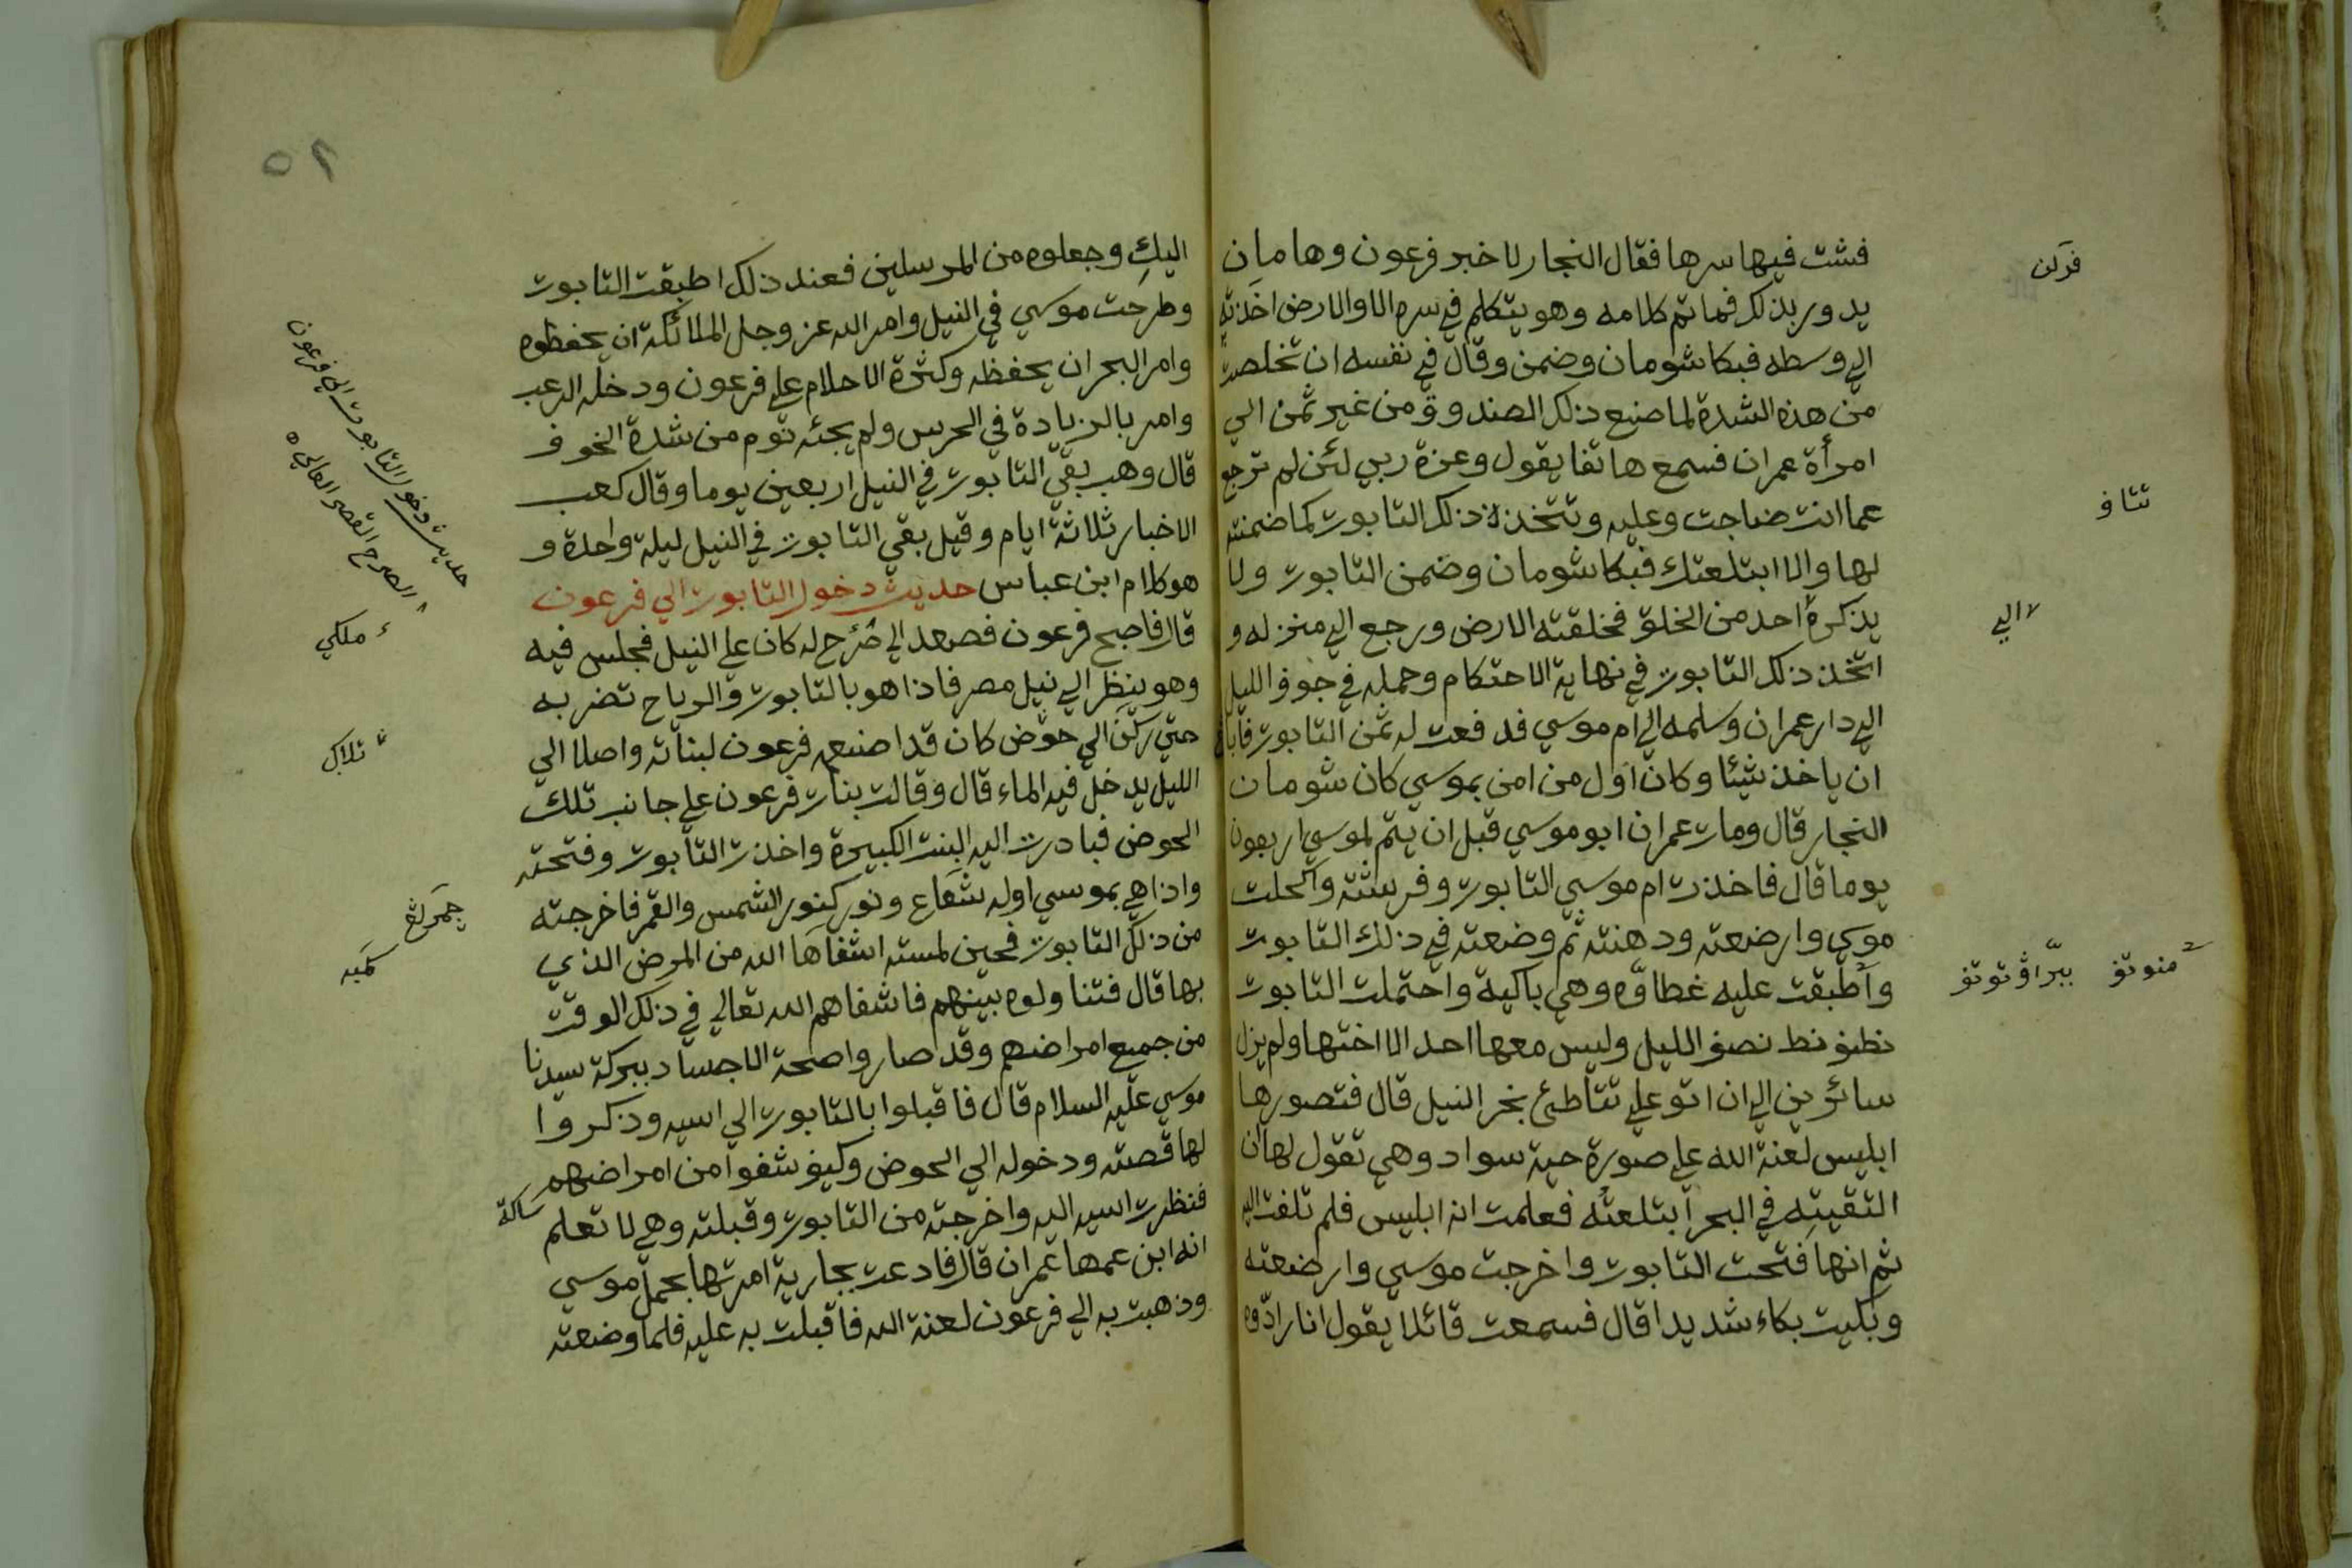 فشت فيها سرها فقال النجار لاخبر فرعون وهامان
يدور بذلك فما تم كلامه وهو يتكلم في سره الا والارض اخذته
الي وسطه فبكا شومان وضمن وقال في نفسه ان تخلصت
من هذه الشدة لما صنع ذلك الصندوق من غير ثمن الي
امرأة عمران فسمع هاتفا يقول وعزة ربي لئن لم ترجع
عما انت ضاجت وعليه وتتخذ ذلك التابوت كما ضمنته
لها والا ابتلعتك فبكا شومان وضمن التابوت ولا
يذكره احد من الخلق فخلقته الارض ورجع الي منزله و
اتخذ ذلك التابوت في نهاية الاحتكام وحمله في جوف الليل
الي دار عمران وسلمه الي ام موسي فدفعت له ثمن التابوت فابا
ان ياخذ شيئا وكان اول من امن بموسي كان شومان
النجار قال ومات عمران ابو موسي قبل ان يتم لموسي اربعون
يوما قال فاخذت ام موسي التابوت وفرشته واكحلت
موسي وارضعته ودهنته ثم وضعته في ذلك التابوت
واطبقت عليه غطاؤه وهي باكية واحتملت التابوت
نصف الليل وليس معها احد الا اختها ولم يزل
سائرين الي ان اتو علي شاطئ بحر النيل قال فتصورها
ابليس لعنة الله علي صورة حية سواد وهي تقول لها ان
التقيته في البحر ابتلعته فعلمت انه ابليس فلم تلفت اليه
ثم انها فتحت التابوت واخرجت موسي وارضعته
وبكيت بكاء شديدا قال فسمعت قائلا يقول انا رادوه
فركن
تتاف
الي
منوتف ببراڤوتوتف
٥٢
اليك وجعلوه من المرسلين فعند ذلك اطبقت التابوت
وطرحت موسي في النيل وامر الله عز وجل الملائكة ان يحفظوه
وامر البحر ان يحفظه وكثرة الاحلام علي فرعون ودخله الرعب
وامر بالزيادة في الحرس ولم يجئه نوم من شدة الخوف
قال وهب بقي التابوت في النيل اربعين يوما وقال كعب
الاخبار ثلاثة ايام وقيل بقي التابوت في النيل ليلة واحدة و
هو كلام ابن عباس حديث دخول التابوت الي فرعون
قال فاصبح فرعون فصعد الي صرح له كان علي النيل فجلس فيه
وهو ينظر الي نيل مصر فاذا هو بالتابوت والرياح تضربه
حتي ركن الي حوض كان قد اصنعه فرعون لبناته واصلا الي
الليل يدخل فيه الماء قال وقالت بنات فرعون علي جانب تلك
الحوض فبادرت اليه البنت الكبيرة واخذت التابوت وفتحته
واذا هي بموسي اوله شعاع ونور كنور الشمس والقمر فاخرجته
من ذلك التابوت فحين لمسته اشفاها الله من المرض الذي
بها قال فتناولوه بينهم فاشفاهم الله تعالي في ذلك الوقت
من جميع امراضهم وقد صاروا صحة الاجساد ببركة سيدنا
موسي عليه السلام قال فاقبلوا بالتابوت الي اسيه وذكروا
لها قصته ودخوله الي الحوض وكيف شفوا من امراضهم
فنظرت اسيه اليه واخرجته من التابوت وقبلته وهي لا تعلم
انه ابن عمها عمران قال فادعت بجارية امرتها بحمل موسي
وذهبت به الي فرعون لعنة الله فاقبلت به عليه فلما وضعته
حديث دخول التابوت الي فرعون
الصرح القصر العالي
ملكي
تلاڬ
كمبه